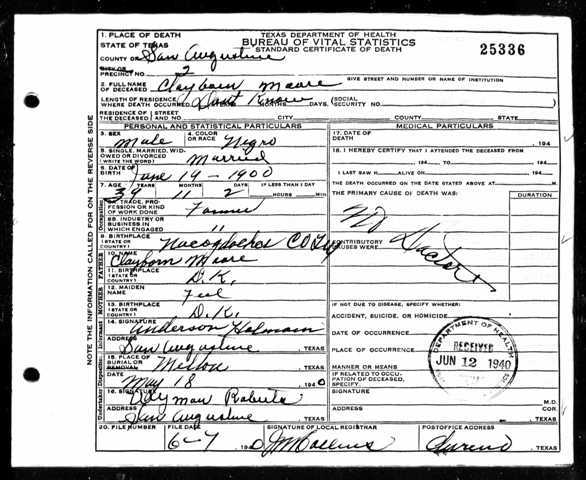 1. PLACE OF DEATH
STATE OF TEXAS
TEXAS DEPARTMENT OF HEALTH
BUREAU OF VITAL STATISTICS
STANDARD CERTIFICATE OF DEATH
25336
COUNTY OF San Augustine
CITY OR
PRECINCT NO. 2
GIVE STREET AND NUMBER OR NAME OF INSTITUTION
2. FULL NAME OF DECEASED Clayborn Moore
LENGTH OF RESIDENCE WHERE DEATH OCCURRED Dont Know DAYS. (SOCIAL SECURITY NO.)
RESIDENCE OF THE DECEASED (STREET AND NO. CITY COUNTY STATE
PERSONAL AND STATISTICAL PARTICULARS
MEDICAL PARTICULARS
3. SEX Male
4. COLOR OR RACE Negro
17. DATE OF DEATH 194
5. SINGLE, MARRIED, WIDOWED OR DIVORCED (WRITE THE WORD) Married
18. I HEREBY CERTIFY THAT I ATTENDED THE DECEASED FROM
194 TO 194
6. DATE OF BIRTH June 19 - 1900
I LAST SAW H ALIVE ON 194
7. AGE YEARS MONTHS DAYS IF LESS THAN 1 DAY
39 11 2 HOURS MIN
THE DEATH OCCURRED ON THE DATE STATED ABOVE AT M.
THE PRIMARY CAUSE OF DEATH WAS: DURATION
8A. TRADE, PROFESSION OR KIND OF WORK DONE Farmer
8B. INDUSTRY OR BUSINESS IN WHICH ENGAGED "
No Doctor
CONTRIBUTORY CAUSES WERE:
9. BIRTHPLACE (STATE OR COUNTRY) Nacogdoches CO Tex
10. NAME Clayborn Moore
11. BIRTHPLACE (STATE OR COUNTRY) D.K.
12. MAIDEN NAME
13. BIRTHPLACE (STATE OR COUNTRY) D.K.
IF NOT DUE TO DISEASE, SPECIFY WHETHER:
ACCIDENT, SUICIDE, OR HOMICIDE
14. SIGNATURE Anderson Holmain
DATE OF OCCURRENCE
ADDRESS San Augustine, TEXAS
PLACE OF OCCURRENCE
15. PLACE OF BURIAL OR REMOVAL TEXAS
MANNER OR MEANS
DATE May 18 1940
IF RELATED TO OCCUPATION OF DECEASED, SPECIFY
DEPARTMENT OF HEALTH
RECEIVED
JUN 12 1940
16. SIGNATURE Roberts
SIGNATURE M.D.
ADDRESS San Augustine TEXAS
ADDRESS TEXAS
20. FILE NUMBER FILE DATE SIGNATURE OF LOCAL REGISTRAR POSTOFFICE ADDRESS
6-7 1940 J M Collins TEXAS
NOTE THE INFORMATION CALLED FOR ON THE REVERSE SIDE
Occupation
FATHER
MOTHER
Informant
Undertaker